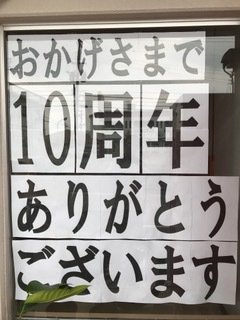 おかげさまで
10周年
ありがとう
ございます